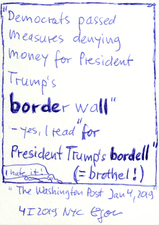 "Democrats passed
measures denying
money for President
Trump's
border wall"
- yes, I read "for
President Trump's bordell"
I hate it! (= brothel!)
"The Washington Post Jan 4, 2019
4 I 2019 NYC